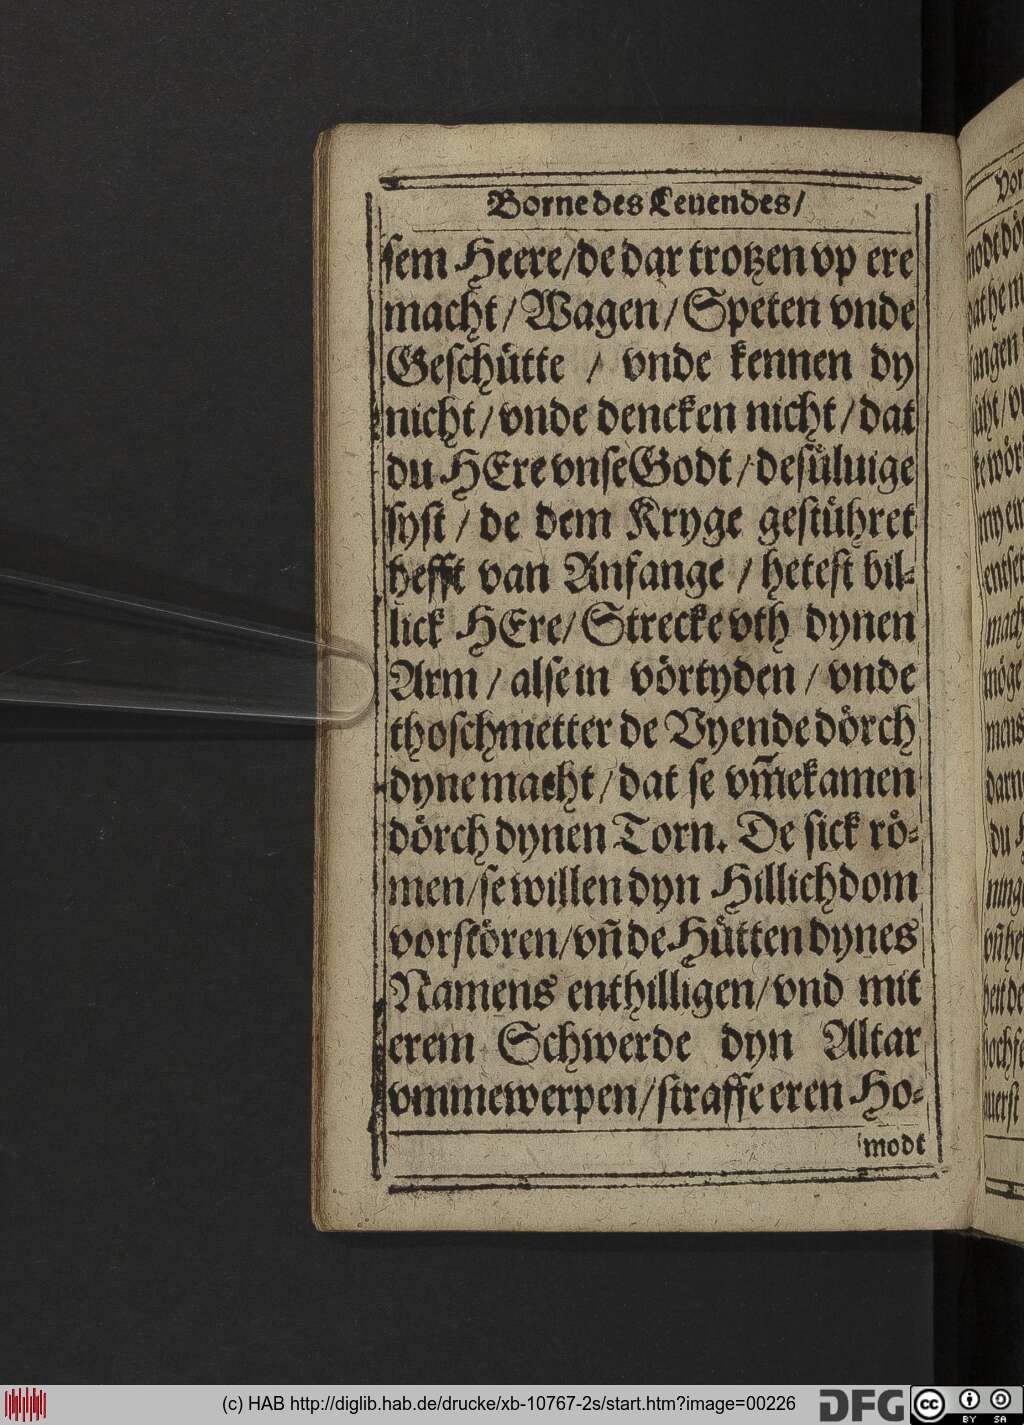 Borne des Leuendes/
sem Heere/de dar trotzen vp ere
macht/Wagen/Speten vnde
Geschütte / vnde kennen dy
nicht/vnde dencken nicht/dat
du HEre vnse Godt/desüluige
syst / de dem Kryge gestühret
hefft van Anfange / hetest bil-
lick HEre/Strecke vth dynen
Arm / alse in vörtyden / vnde
thoschmetter de Vyende dörch
dyne macht/dat se vm̄ekamen
dörch dynen Torn. De sick rö-
men/se willen dyn Hillichdom
vorstören/vn̄ de Hütten dynes
Namens enthilligen/vnd mit
erem Schwerde dyn Altar
vmmewerpen/straffe eren Ho-
modt
Vor
modt dö
dat he m
fangen
/v
wör
my en
entset
mach
möge
mens
darn
du H
ning
vn̄ he
heit de
hochfe
auerst
(c) HAB http://diglib.hab.de/drucke/xb-10767-2s/start.htm?image=00226
DFG
cc BY SA